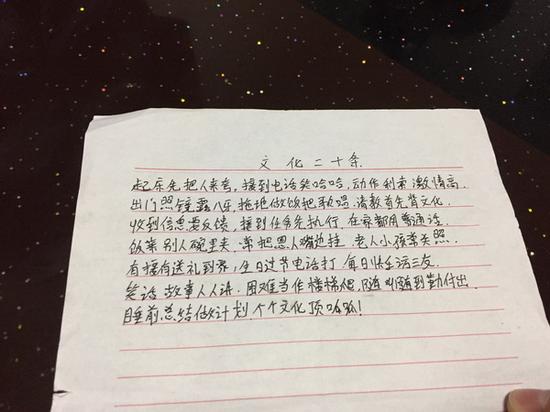 文化二十条
起床先把人来夸，接到电话笑哈哈，动作利索激情高，
出门照镜露八牙，拖地做饭把歌唱，请教首先背文化，
收到信息要反馈，接到任务先执行，在家都用普通话，
饭菜别人碗里夹，常把恩人嘴边挂，老人小孩常关照，
有接有送礼到家，生日过节电话打，每日怀念三友，
笑话故事人人讲，困难当作楼梯爬，随叫随到勤付出，
睡前总结做计划，个个文化顶呱呱！